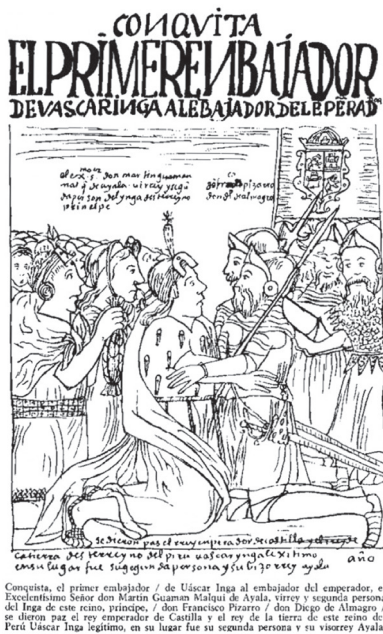 CONQVITA
EL PRIMER ENBAJADOR
DE VASCAR INGA AL EBAJADOR DEL EPĒRADOR
el exmo s. don martin guaman
mal q de ayala. virrey y segu
da person del ynga deste reyno
principe
pizarro
de almagro
se dieron pas el rrey enpirador de castilla y el rrey de
la tierra deste rreyno del piru uascar ynga lexitimo
en su lugar fue su segunda persona y su bizorrey ayala
año
Conquista, el primer embajador / de Uáscar Inga al embajador del emperador, e
Excelentísimo Señor don Martín Guaman Malqui de Ayala, virrey y segunda person
del Inga de este reino, príncipe, / don Francisco Pizarro / don Diego de Almagro /
se dieron paz el rey emperador de Castilla y el rey de la tierra de este reino de
Perú Uáscar Inga legítimo, en su lugar fue su segunda persona y su visorrey Ayala